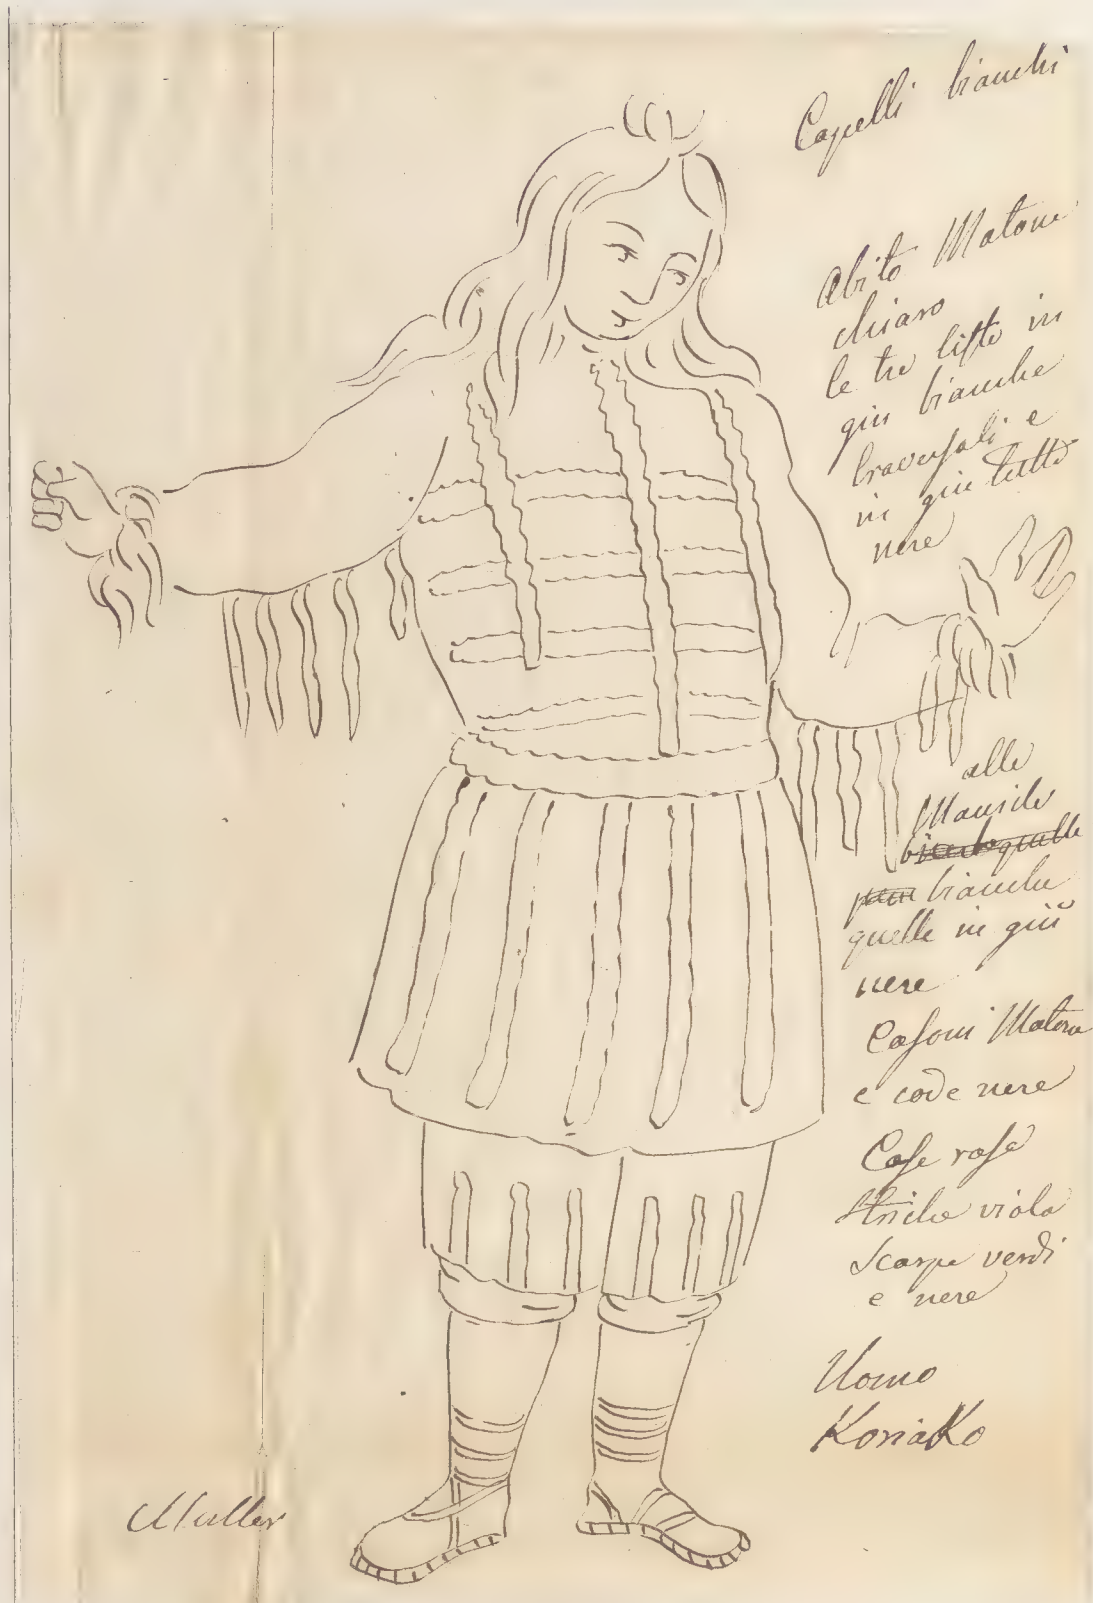 Capelli bianchi
Abito Matone
chiaro
le tre liste in
giu bianche
traversali e
in giu tutte
nere
alle
Maniche
bianche
quelle in giù
nere
Casoni Matone
e code nere
Case rose
Striche viola
Scarpe verdi
e nere
Uomo
KoriaKo
Muller